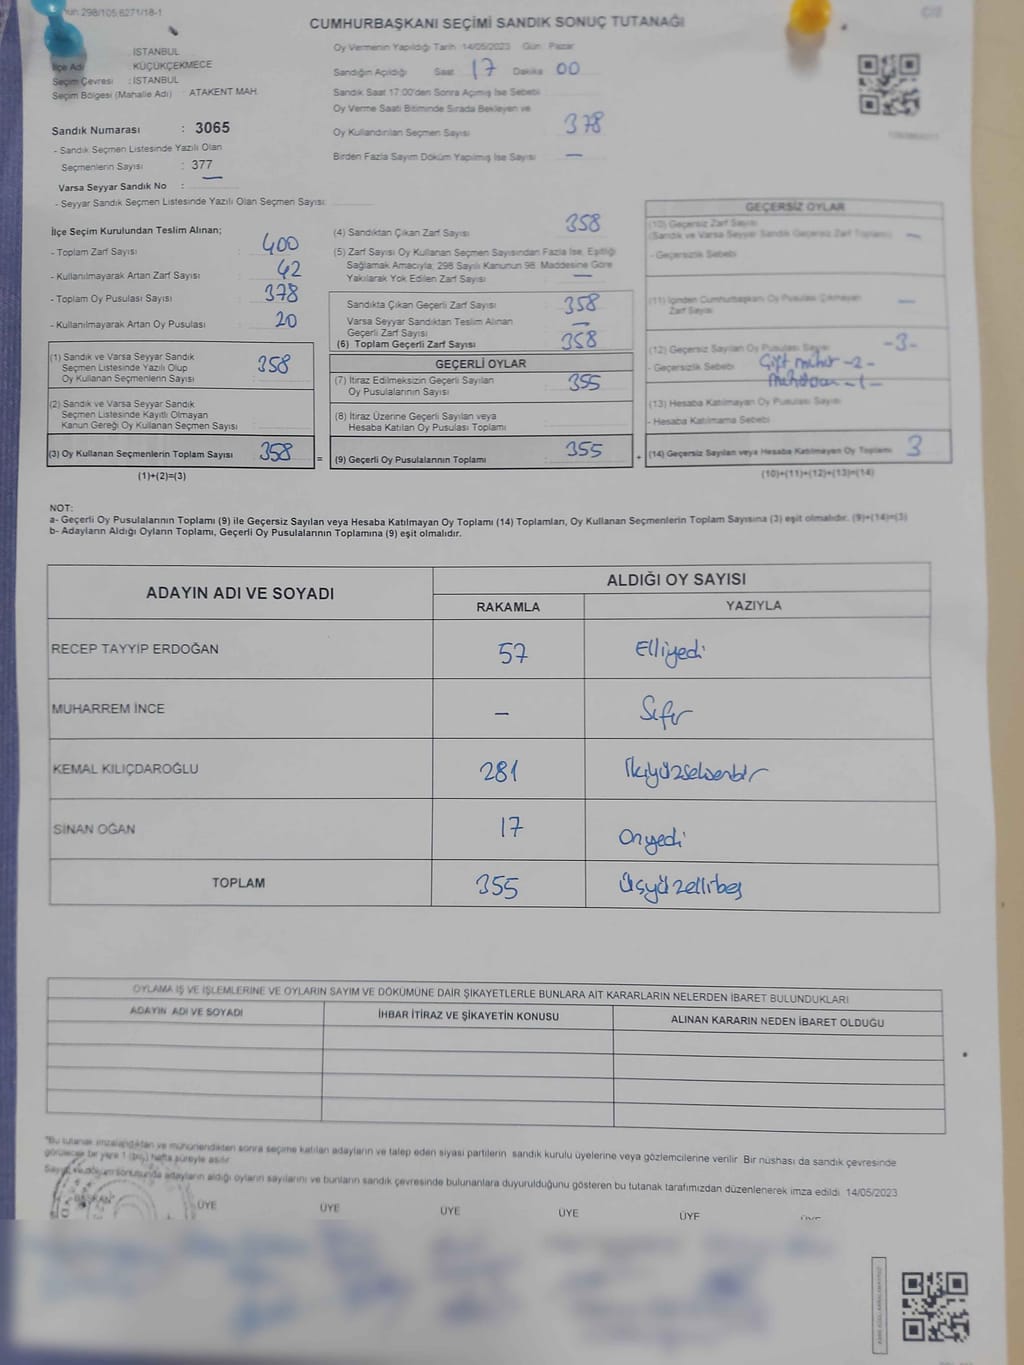 298/105,6271/18-1
CUMHURBAŞKANI SEÇİMİ SANDIK SONUÇ TUTANAĞI
İSTANBUL
İlçe Adı KÜÇÜKÇEKMECE
Seçim Çevresi : İSTANBUL
Seçim Bölgesi (Mahalle Adı) : ATAKENT MAH.
Sandık Numarası : 3065
- Sandık Seçmen Listesinde Yazılı Olan
Seçmenlerin Sayısı : 377
Varsa Seyyar Sandık No :
- Seyyar Sandık Seçmen Listesinde Yazılı Olan Seçmen Sayısı:
Oy Vermenin Yapıldığı Tarih :14/05/2023 Gün: Pazar
Sandığın Açıldığı Saat 17 Dakika 00
Sandık Saat 17:00'den Sonra Açılmış İse Sebebi
Oy Verme Saati Bitiminde Sırada Bekleyen ve
Oy Kullandırılan Seçmen Sayısı 378
Birden Fazla Sayım Döküm Yapılmış İse Sayısı —
İlçe Seçim Kurulundan Teslim Alınan;
- Toplam Zarf Sayısı : 400
- Kullanılmayarak Artan Zarf Sayısı : 42
- Toplam Oy Pusulası Sayısı : 378
- Kullanılmayarak Artan Oy Pusulası : 20
(1) Sandık ve Varsa Seyyar Sandık
Seçmen Listesinde Yazılı Olup
Oy Kullanan Seçmenlerin Sayısı : 358
(2) Sandık ve Varsa Seyyar Sandık
Seçmen Listesinde Kayıtlı Olmayan
Kanun Gereği Oy Kullanan Seçmen Sayısı :
(3) Oy Kullanan Seçmenlerin Toplam Sayısı : 358
(1)+(2)=(3)
(4) Sandıktan Çıkan Zarf Sayısı : 358
(5) Zarf Sayısı Oy Kullanan Seçmen Sayısından Fazla İse, Eşitliği
Sağlamak Amacıyla; 298 Sayılı Kanunun 98. Maddesine Göre
Yakılarak Yok Edilen Zarf Sayısı : —
Sandıkta Çıkan Geçerli Zarf Sayısı : 358
Varsa Seyyar Sandıktan Teslim Alınan
Geçerli Zarf Sayısı : —
(6) Toplam Geçerli Zarf Sayısı : 358
GEÇERLİ OYLAR
(7) İtiraz Edilmeksizin Geçerli Sayılan
Oy Pusulalarının Sayısı : 355
(8) İtiraz Üzerine Geçerli Sayılan veya
Hesaba Katılan Oy Pusulası Toplamı :
= (9) Geçerli Oy Pusulalarının Toplamı : 355
GEÇERSİZ OYLAR
(10) Geçersiz Zarf Sayısı
(Sandık ve Varsa Seyyar Sandık Geçersiz Zarf Toplamı) —
- Geçersizlik Sebebi
(11) İçinden Cumhurbaşkanı Oy Pusulası Çıkmayan
Zarf Sayısı —
(12) Geçersiz Sayılan Oy Pusulası Sayısı -3-
- Geçersizlik Sebebi Çift mühür -2-
(13) Hesaba Katılmayan Oy Pusulası Sayısı
- Hesaba Katılmama Sebebi
+ (14) Geçersiz Sayılan veya Hesaba Katılmayan Oy Toplamı 3
(10)+(11)+(12)+(13)=(14)
NOT:
a- Geçerli Oy Pusulalarının Toplamı (9) ile Geçersiz Sayılan veya Hesaba Katılmayan Oy Toplamı (14) Toplamları, Oy Kullanan Seçmenlerin Toplam Sayısına (3) eşit olmalıdır. (9)+(14)=(3)
b- Adayların Aldığı Oyların Toplamı, Geçerli Oy Pusulalarının Toplamına (9) eşit olmalıdır.
ADAYIN ADI VE SOYADI ALDIĞI OY SAYISI
RAKAMLA YAZIYLA
RECEP TAYYİP ERDOĞAN 57 Elliyedi
MUHARREM İNCE — Sıfır
KEMAL KILIÇDAROĞLU 281 İkiyüzseksenbir
SİNAN OĞAN 17 Onyedi
TOPLAM 355 Üçyüzellibeş
OYLAMA İŞ VE İŞLEMLERİNE VE OYLARIN SAYIM VE DÖKÜMÜNE DAİR ŞİKAYETLERLE BUNLARA AİT KARARLARIN NELERDEN İBARET BULUNDUKLARI
ADAYIN ADI VE SOYADI İHBAR İTİRAZ VE ŞİKAYETİN KONUSU ALINAN KARARIN NEDEN İBARET OLDUĞU
*Bu tutanak imzalandıktan ve mühürlendikten sonra seçime katılan adayların ve talep eden siyasi partilerin sandık kurulu üyelerine veya gözlemcilerine verilir. Bir nüshası da sandık çevresinde
görülecek bir yere 1 (bir) hafta süreyle asılır.
Sayım ve döküm sonucunda adayların aldığı oyların sayılarını ve bunların sandık çevresinde bulunanlara duyurulduğunu gösteren bu tutanak tarafımızdan düzenlenerek imza edildi. 14/05/2023
BAŞKAN ÜYE ÜYE ÜYE ÜYE ÜYE ÜYE